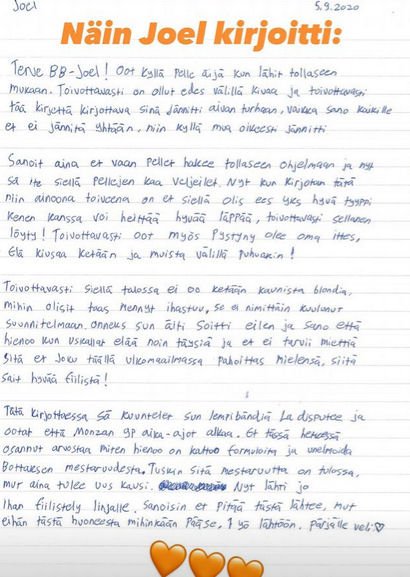 Joel 5.9.2020
Näin Joel kirjoitti:
Terve BB-Joel! Oot kyllä pelle äijä kun lähit tollaseen
mukaan. Toivottavasti on ollut edes välillä kivaa ja toivottavasti
tää kirjettä kirjottava sinä jännitti aivan turhaan, vaikka sano kaikille
et ei jännitä yhtään, niin kyllä mua oikeesti jännitti
Sanoit aina et vaan pellet hakee tollaseen ohjelmaan ja nyt
sä ite siellä pellejen kaa veljeilet. Nyt kun kirjotan tätä
niin ainoona toiveena on et siellä olis ees yks hyvä tyyppi
kenen kanssa voi heittää hyvää läppää, toivottavasti sellanen
löyty! Toivottavasti oot myös pystyny olee oma ittes,
Elä kiusaa ketään ja muista välillä puhuakin!
Toivottavasti siellä talossa ei oo ketään kaunista blondia,
mihin olisit taas mennyt ihastuu, se ei nimittäin kuulunut
suunnitelmaan. Onneks sun äiti soitti eilen ja sano että
hienoo kun uskallat elää noin täysiä ja et ei tarvii miettiä
sitä et joku täällä ulkomaailmassa pahoittas mielensä, siitä
sait hyvää fiilistä!
Tätä kirjottaessa sä kuuntelet sun lempibändiä La dispute ja
ootat että Monzan gp aika-ajot alkaa. Et tässä hetkessä
osannut arvostaa miten hienoo on kattoo formuloita ja unelmoida
Bottaksen mestaruudesta. Tuskin sitä mestaruutta on tulossa,
mut aina tulee uus kausi. Nyt lähti jo
ihan fiilistely linjalle. Sanoisin et pitää tästä lähtee, mut
eihän tästä huoneesta mihinkään pääse, 1 yö lähtöön. Pärjälle veli♡